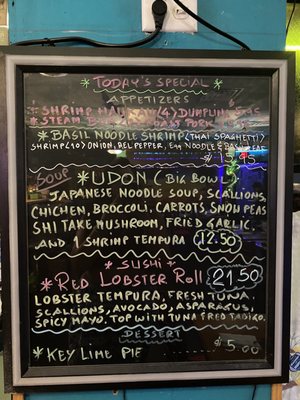 *TODAY'S SPECIAL*
APPETIZERS
* SHRIMP (4) DUMPLING $
* STEAM PORK
*BASIL NOODLE SHRIMP (THAI SPAGHETTI)
SHRIMP (10) ONION, BEL PEPPER, EGG NOODLE & BASIL LEAF
SOUP *UDON (BIG BOWL
JAPANESE NOODLE SOUP, SCALLIONS,
CHICHEN, BROCCOLI, CARROTS, SNOW PEAS
SHI TAKE MUSHROOM, FRIED GARLIC,
AND 1 SHRIMP TEMPURA 12.50
* SUSHI *
*RED LOBSTER ROLL 21.50
LOBSTER TEMPURA, FRESH TUNA,
SCALLIONS, AVOCADO, ASPARAGUS,
SPICY MAYO. TOP WITH TUNA FRED TABICO.
DESSERT
*KEY LIME PIE ........... $5.00